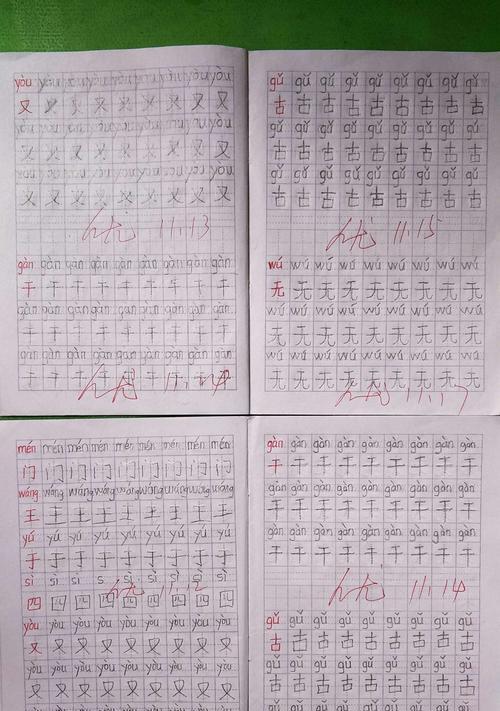 yòu yòu yòu yòu yòu yòu yòu yòu yòu
又 又 又 又 又 又 又 又 又
yòu yòu yòu yòu yòu yòu yòu yòu yòu
又 又 又 又 又 又 又 又 又
yòu yòu yòu yòu yòu yòu yòu yòu yòu
又 又 又 又 又 又 又 又 又
优 11.13
gàn gàn gàn gàn gàn gàn gàn gàn gàn
干 干 干 干 干 干 干 干 干
gàn gàn gàn gàn gàn gàn gàn gàn gàn
干 干 干 干 干 干 干 干 干
gàn gàn gàn gàn gàn gàn gàn gàn gàn
干 干 干 干 干 干 干 干 干
优 11.14
gǔ gǔ gǔ gǔ gǔ gǔ gǔ gǔ gǔ
古 古 古 古 古 古 古 古 古
gǔ gǔ gǔ gǔ gǔ gǔ gǔ gǔ gǔ
古 古 古 古 古 古 古 古 古
gǔ gǔ gǔ gǔ gǔ gǔ gǔ gǔ gǔ
古 古 古 古 古 古 古 古 古
优 11.15
wú wú wú wú wú wú wú wú wú
无 无 无 无 无 无 无 无 无
wú wú wú wú wú wú wú wú wú
无 无 无 无 无 无 无 无 无
wú wú wú wú wú wú wú wú wú
无 无 无 无 无 无 无 无 无
优 11.17
mén mén mén mén mén mén mén mén mén
门 门 门 门 门 门 门 门 门
wáng wáng wáng wáng wáng wáng wáng wáng wáng
王 王 王 王 王 王 王 王 王
yú yú yú yú yú yú yú yú yú
于 于 于 于 于 于 于 于 于
sì sì sì sì sì sì sì sì sì
优 11.12
四 四 四 四 四 四 四 四 四
yòu yòu yòu yòu yòu yòu yòu yòu yòu
又 又 又 又 又 又 又 又 又
yòu yòu yòu yòu yòu yòu yòu yòu yòu
又 又 又 又 又 又 又 又 又
gàn gàn gàn gàn gàn gàn gàn gàn gàn
干 干 干 干 干 干 干 干 干
gàn gàn gàn gàn gàn gàn gàn gàn gàn
干 干 干 干 干 干 干 干 干
gàn gàn gàn gàn gàn gàn gàn gàn gàn
干 干 干 干 干 干 干 干 干
优 11.14
gǔ gǔ gǔ gǔ gǔ gǔ gǔ gǔ gǔ
古 古 古 古 古 古 古 古 古
gǔ gǔ gǔ gǔ gǔ gǔ gǔ gǔ gǔ
古 古 古 古 古 古 古 古 古